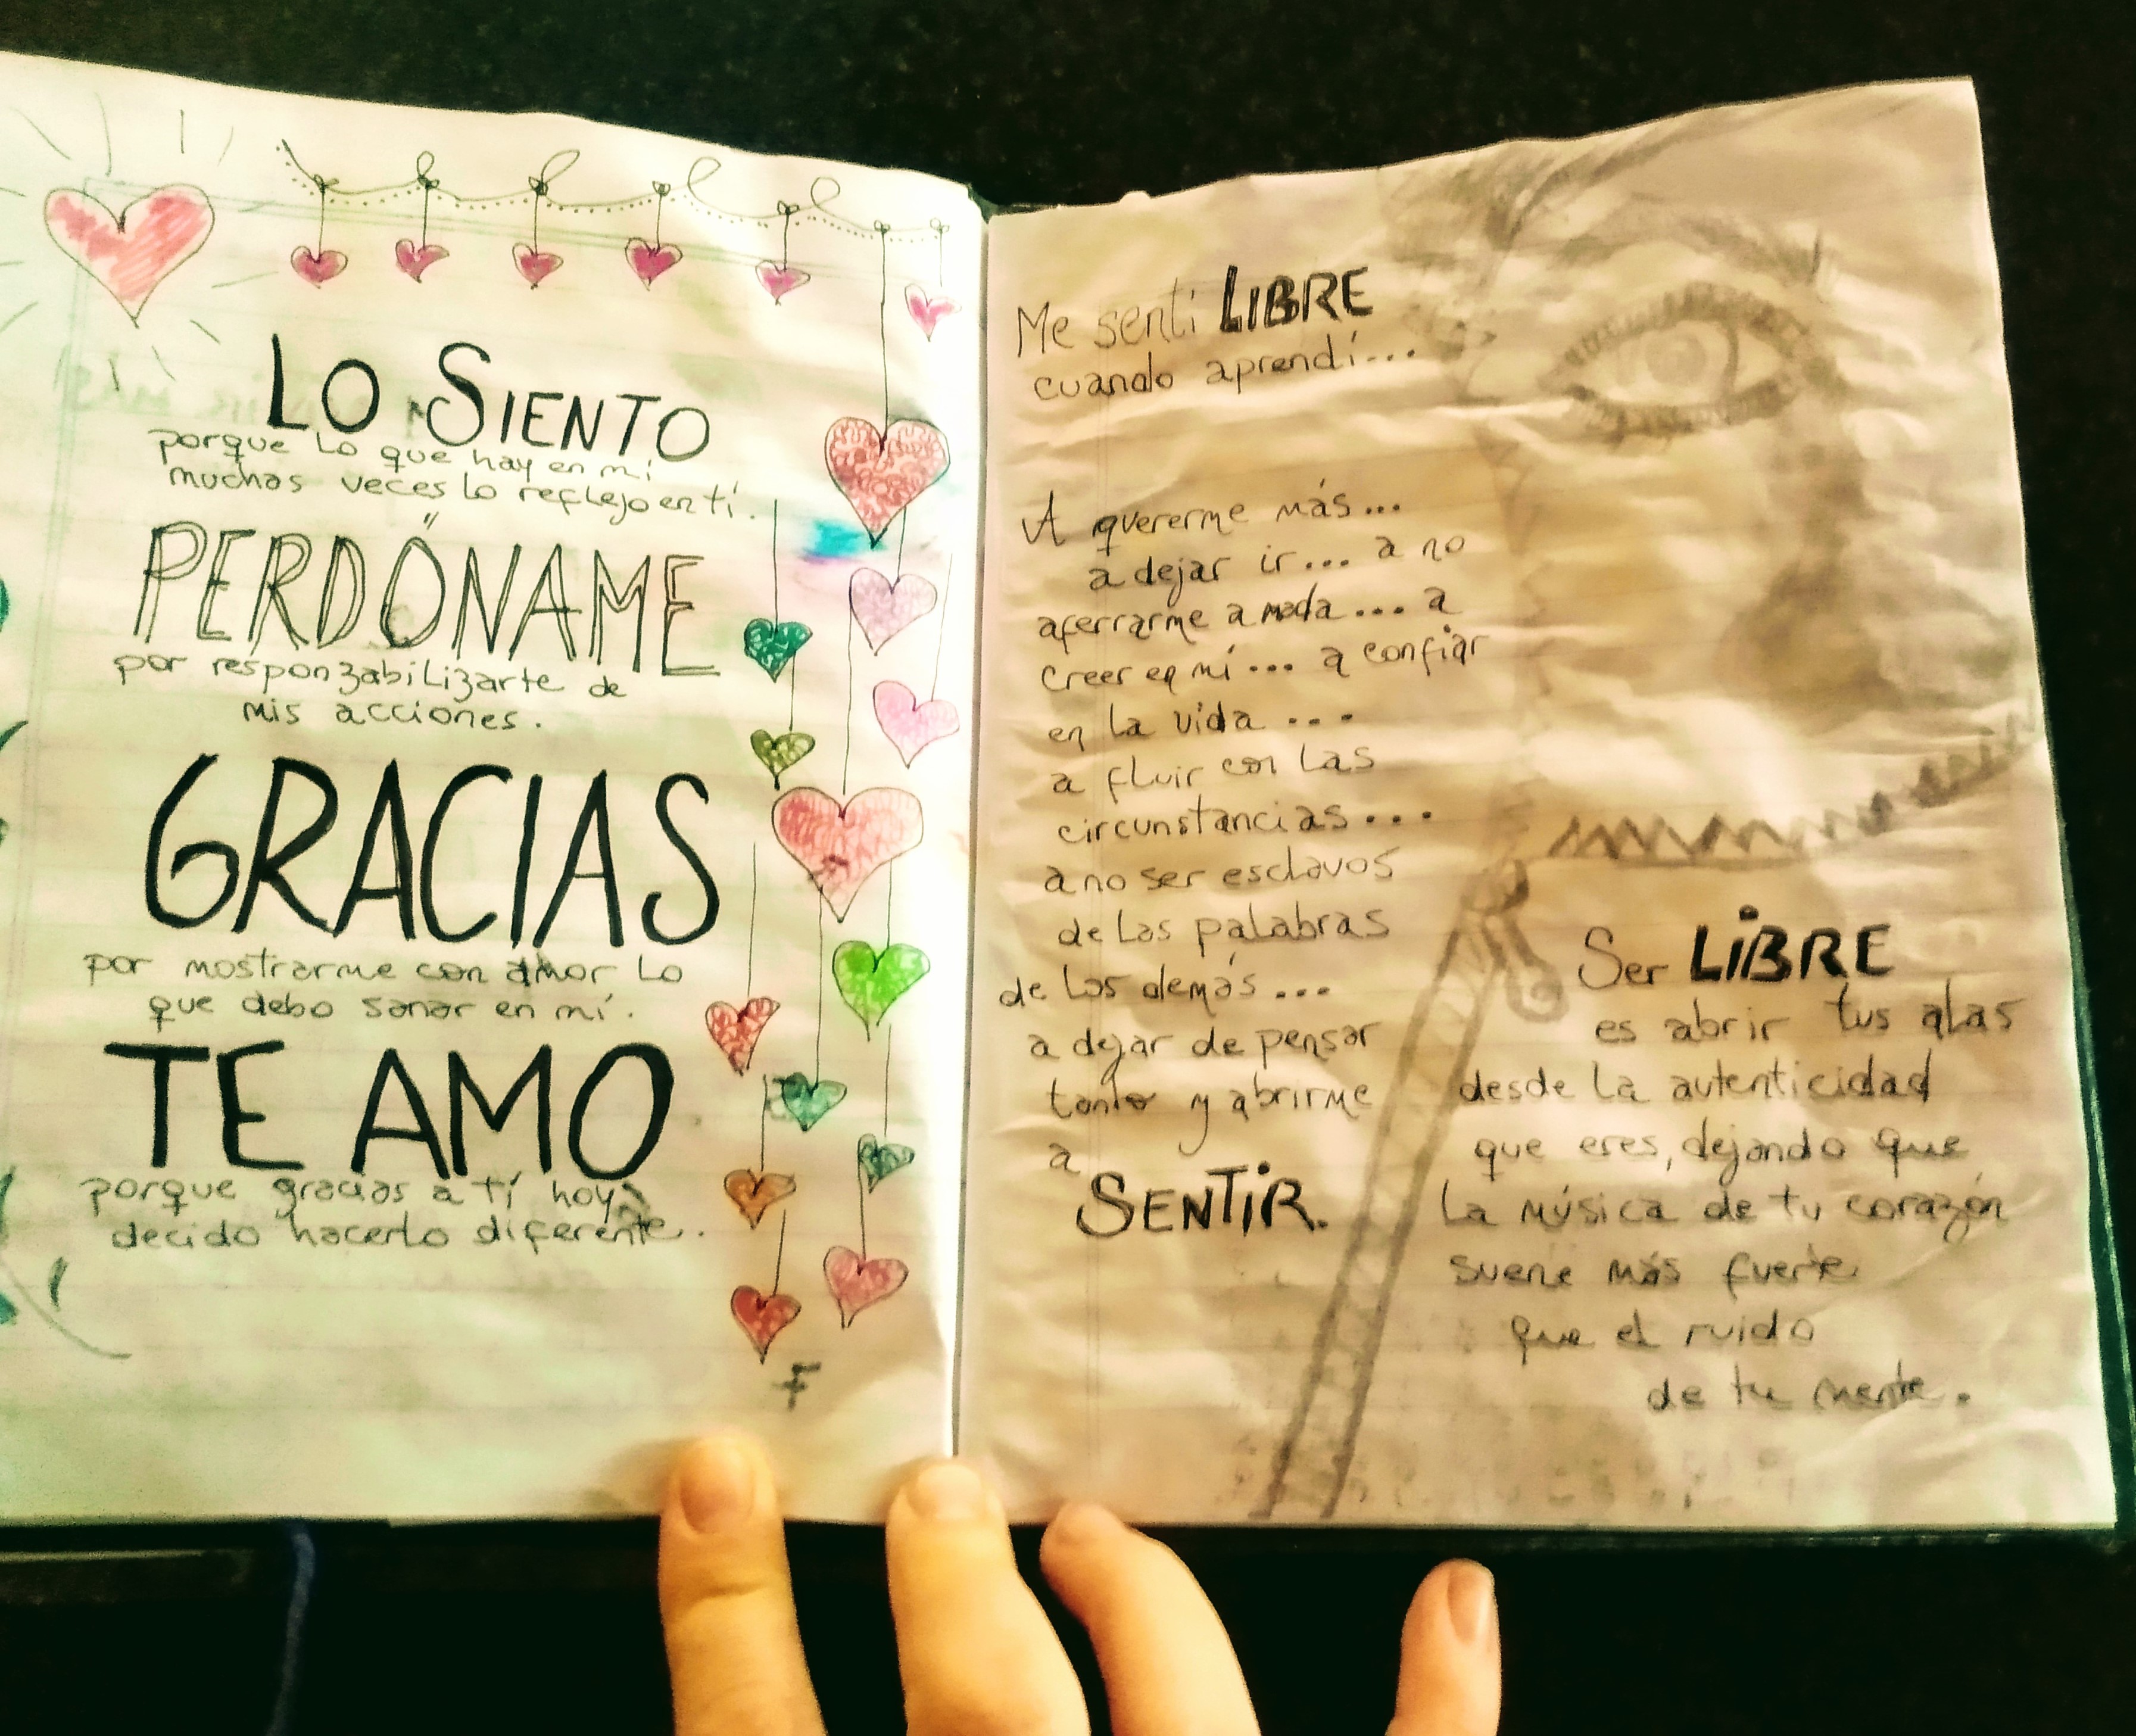 LO SIENTO
porque lo que hay en mí
muchas veces lo reflejo en tí.
PERDÓNAME
por responzabilizarte de
mis acciones.
GRACIAS
por mostrarme con amor lo
que debo sanar en mí.
TE AMO
porque gracias a tí hoy
decido hacerlo diferente.
F
Me sentí LIBRE
cuando aprendí...
A quererme más...
a dejar ir... a no
aferrarme a nada... a
creer en mí... a confiar
en la vida ...
a fluir con las
circunstancias...
a no ser esclavos
de las palabras
de los demás...
a dejar de pensar
tanto y abrirme
a
SENTIR.
Ser LIBRE
es abrir tus alas
desde la autenticidad
que eres, dejando que
la música de tu corazón
suene más fuerte
que el ruido
de tu mente.